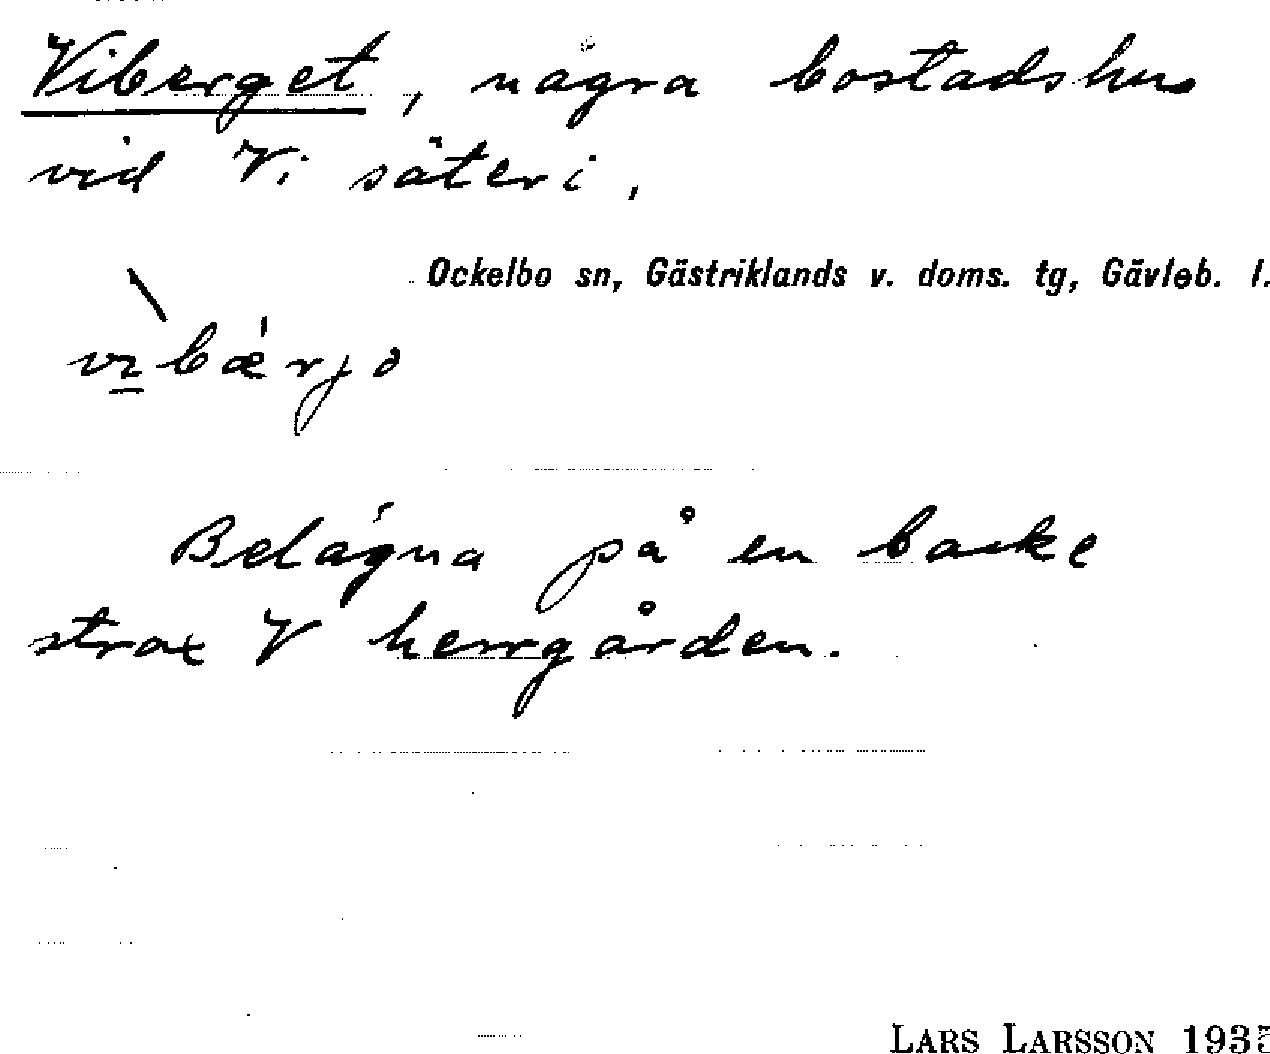 Viberget, några bostadshus
vid Vi säteri,
Ockelbo sn, Gästriklands v. doms. tg, Gävleb. l.
Belägna på en backe
strax V herrgården.
LARS LARSSON 1935